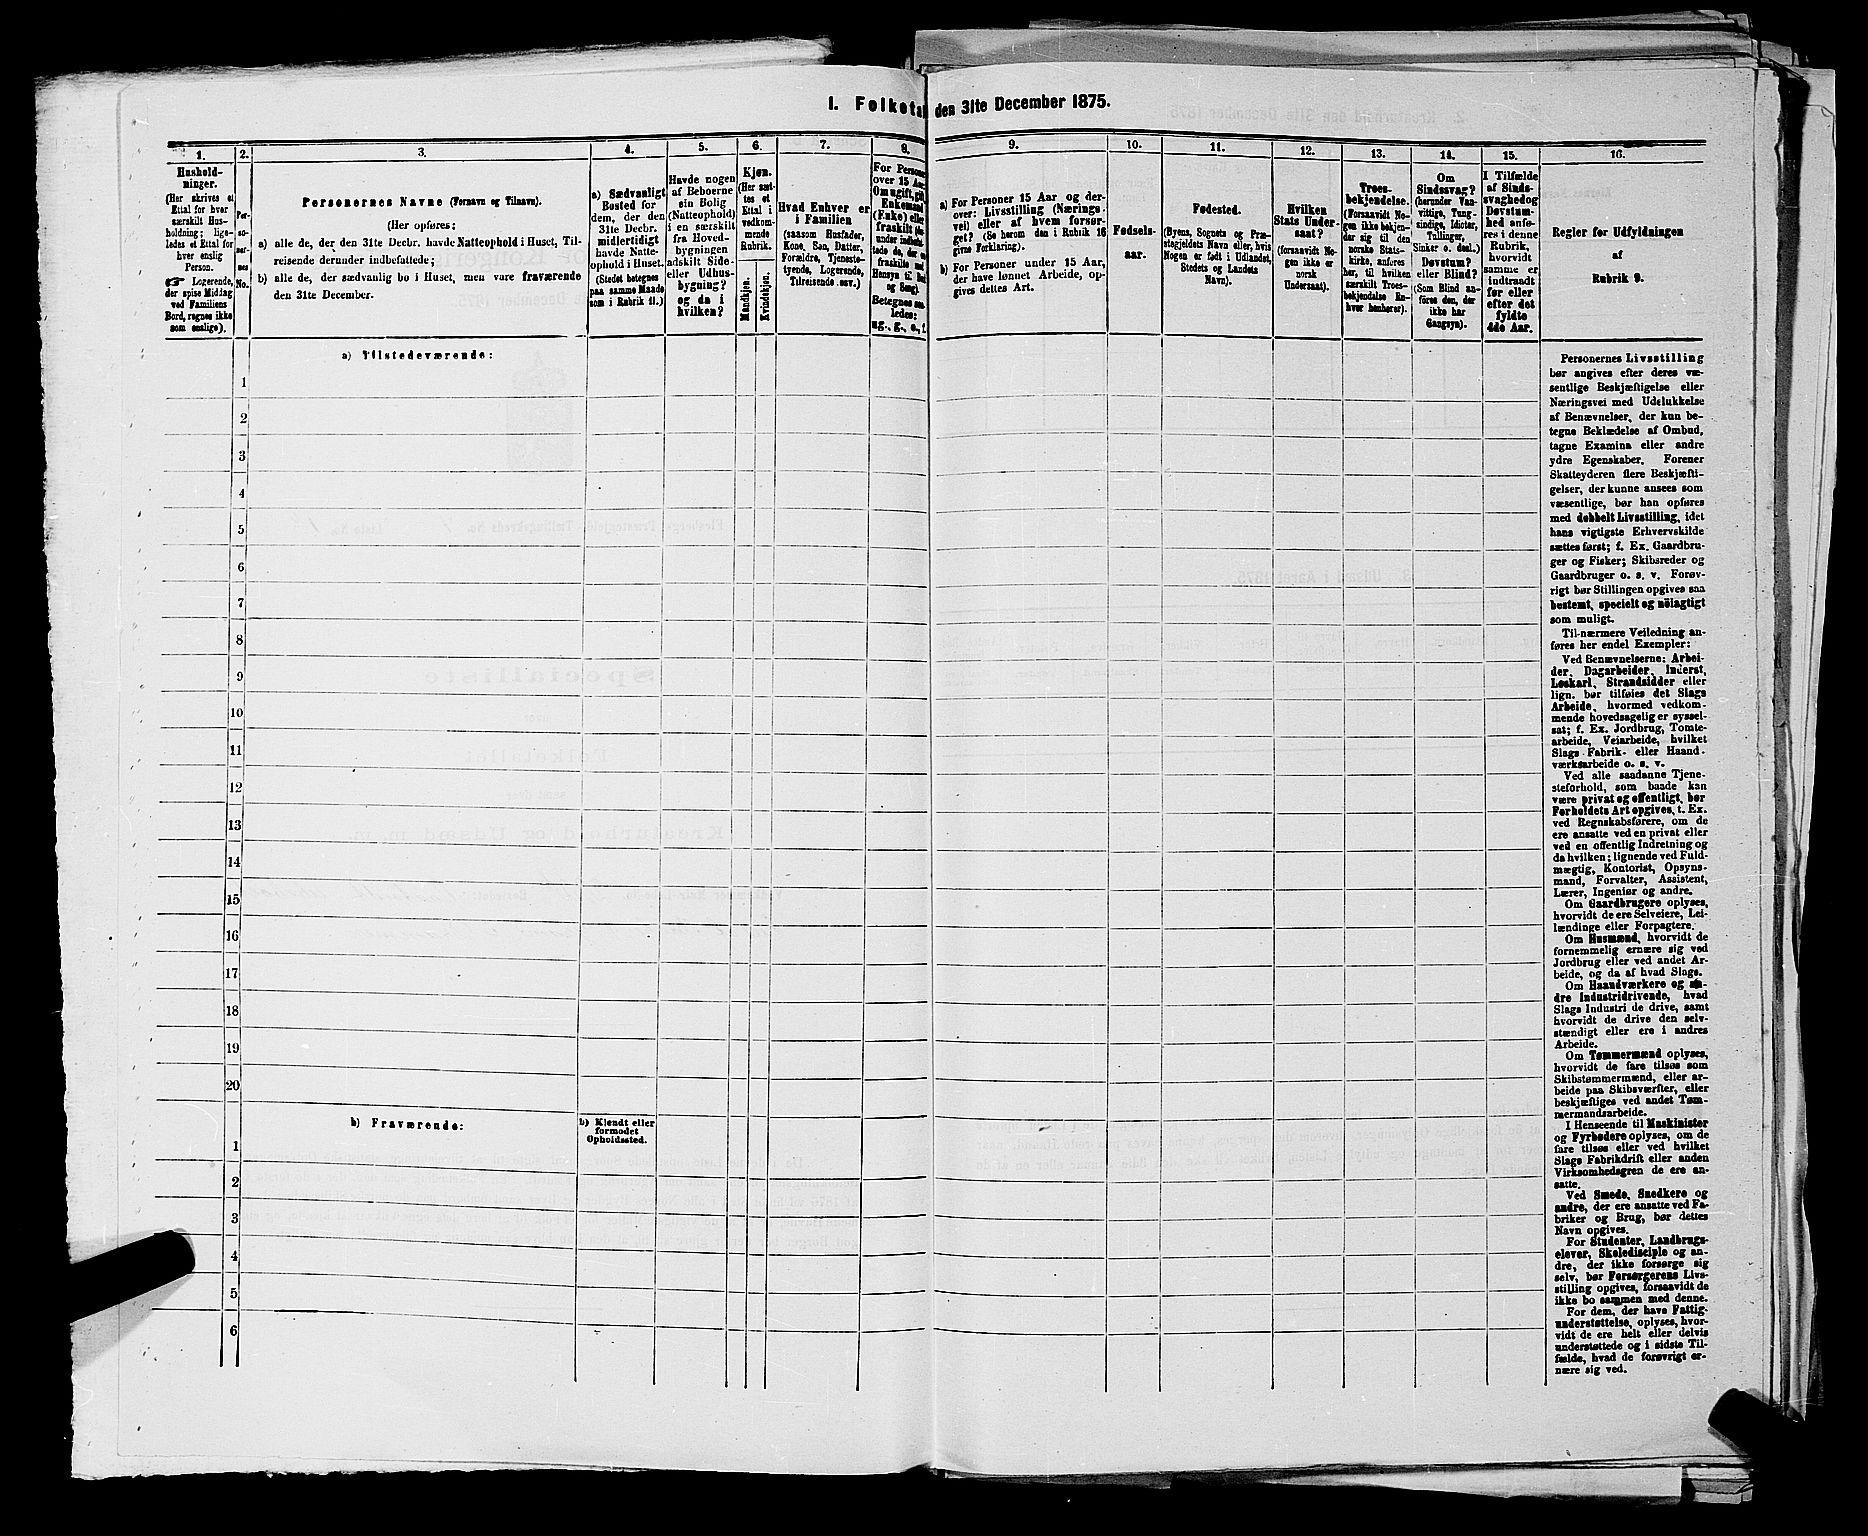 1. Folketal den 31te December 1875.
1.
Hushold-
ninger.
(Her skrives et
Ettal for hver
særskilt Hus-
holdning; lige-
ledes et Ettal for
hver enslig
Person.
☞ Logerende,
der spise Middag
ved Familiens
Bord, regnes ikke
som enslige).
2.
Per-
so-
ner-
nes
No.
3.
Personernes Navne (Fornavn og Tilnavn).
(Her opføres:
a) alle de, der den 31te Decbr. havde Natteophold i Huset, Til-
reisende derunder indbefattede;
b) alle de, der sædvanlig bo i Huset, men vare fraværende
den 31te December.
4.
a) Sædvanligt
Bosted for
dem, der den
31te Decbr.
midlertidigt
havde Natte-
ophold i Huset.
(Stedet betegnes
paa samme Maade
som i Rubrik 11.)
5.
Havde nogen
af Beboerne
sin Bolig
(Natteophold)
i en særskilt
fra Hoved-
bygningen
adskilt Side-
eller Udhus-
bygning?
og da i
hvilken?
6.
Kjøn.
(Her sæt-
tes et
Ettal i
vedkom-
mende
Rubrik.
Mandkjøn.
Kvindekjøn.
7.
Hvad Enhver er
i Familien
(saasom Husfader,
Kone, Søn, Datter,
Forældre, Tjeneste-
tyende, Logerende,
Tilreisende osv.)
8.
For Personer
over 15 Aar:
Om ugift, gift,
Enkemand
(Enke) eller
fraskilt
Betegnes saa-
ledes:
ug., g., e., f.
9.
a) For Personer 15 Aar og der-
over: Livsstilling (Nærings-
vei) eller af hvem forsør-
get? (Se herom den i Rubrik 16
givne Forklaring).
b) For Personer under 15 Aar,
der have lønnet Arbeide, op-
gives dettes Art.
10.
Fødsels-
aar.
11.
Fødested.
(Byens, Sognets og Præ-
stegjeldets Navn eller, hvis
Nogen er født i Udlandet,
Stedets og Landets
Navn).
12.
Hvilken
Stats Under-
saat?
(forsaavidt No-
gen ikke er
norsk
Undersaat).
13.
Troes-
bekjendelse.
(Forsaavidt No-
gen ikke bekjen-
der sig til den
norske Stats-
kirke, anføres
her, til hvilken
særskilt Troes-
bekjendelse En-
hver henhører).
14.
Om
Sindssvag?
(herunder Van-
vittige, Tung-
sindige, Idioter,
Tullinger,
Sinker o. desl.)
Døvstum?
eller Blind?
(Som Blind an-
føres den, der
ikke har
Gangsyn).
15.
I Tilfælde
af Sinds-
svaghed og
Døvstum-
hed anfø-
res i denne
Rubrik,
hvorvidt
samme er
indtraadt
før eller
efter det
fyldte
4de Aar.
16.
Regler for Udfyldningen
af
Rubrik 9.
a) Tilstedeværende:
1
2
3
4
5
6
7
8
9
10
11
12
13
14
15
16
17
18
19
20
b) Fraværende:
b) Kjendt eller
formodet
Opholdssted.
1
2
3
4
5
6
Personernes Livsstilling
bør angives efter deres væ-
sentlige Beskjæftigelse eller
Næringsvei med Udelukkelse
af Benævnelser, der kun be-
tegne Beklædelse af Ombud,
tagne Examina eller andre
ydre Egenskaber. Forener
Skatteyderen flere Beskjæfti-
gelser, der kunne ansees som
væsentlige, bør han opføres
med dobbelt Livsstilling, idet
hans vigtigste Erhvervskilde
sættes først; f. Ex. Gaardbru-
ger og Fisker; Skibsreder og
Gaardbruger o. s. v. Forøv-
rigt bør Stillingen opgives saa
bestemt, specielt og nöiagtigt
som muligt.
Til nærmere Veiledning an-
føres her endel Exempler:
Ved Benævnelserne: Arbei-
der, Dagarbeider, Inderst,
Løskarl, Strandsidder eller
lign. bør tilføies det Slags
Arbeide, hvormed vedkom-
mende hovedsagelig er syssel-
sat; f. Ex. Jordbrug, Tomte-
arbeide, Veiarbeide, hvilket
Slags Fabrik- eller Haand-
værksarbeide o. s. v.
Ved alle saadanne Tjene-
steforhold, som baade kan
være privat og offentligt, bør
Forholdets Art opgives, t. Ex.
ved Regnskabsførere, om de
ere ansatte ved en privat eller
ved en offentlig Indretning og
da hvilken; lignende ved Fuld-
mægtig, Kontorist, Opsyns-
mand, Forvalter, Assistent,
Lærer, Ingeniør og andre.
Om Gaardbrugere oplyses,
hvorvidt de ere Selveiere, Lei-
lændinge eller Forpagtere.
Om Husmænd, hvorvidt de
fornemmelig ernære sig ved
Jordbrug eller ved andet Ar-
beide, og da af hvad Slags.
Om Haandværkere og an-
dre Industridrivende, hvad
Slags Industri de drive, samt
hvorvidt de drive den selv-
stændigt eller ere i andres
Arbeide.
Om Tømmermænd oplyses,
hvorvidt de fare tilsøs som
Skibstømmermænd, eller ar-
beide paa Skibsværfter, eller
beskjæftiges ved andet Tøm-
mermandsarbeide.
I Henseende til Maskinister
og Fyrbødere oplyses, om de
fare tilsøs eller ved hvilket
Slags Fabrikdrift eller anden
Virksomhedsgren de ere an-
satte.
Ved Smede, Snedkere og
andre, der ere ansatte ved Fa-
briker og Brug, bør dettes
Navn opgives.
For Studenter, Landbrugs-
elever, Skoledisciple og an-
dre, der ikke forsørge sig
selv, bør Forsørgerens Livs-
stilling opgives, forsaavidt de
ikke bo sammen med denne.
For dem, der have Fattig-
understøttelse, oplyses, hvor-
vidt de ere helt eller delvis
understøttede og i sidste Til-
fælde, hvad de forøvrigt er-
nære sig ved.